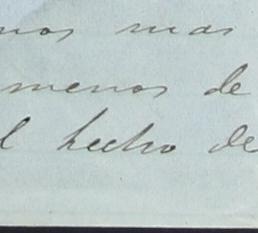 nos mas
menos de
l hecho de